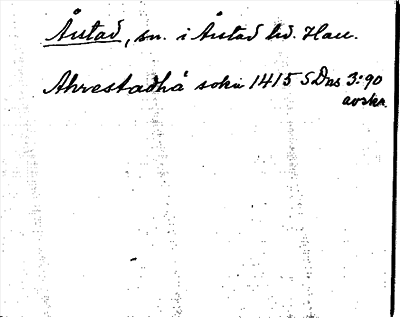 Årstad, sn. i Årstad hd. Hall.
Ahrestadha sokn 1415 SDns 3:90
avskr.